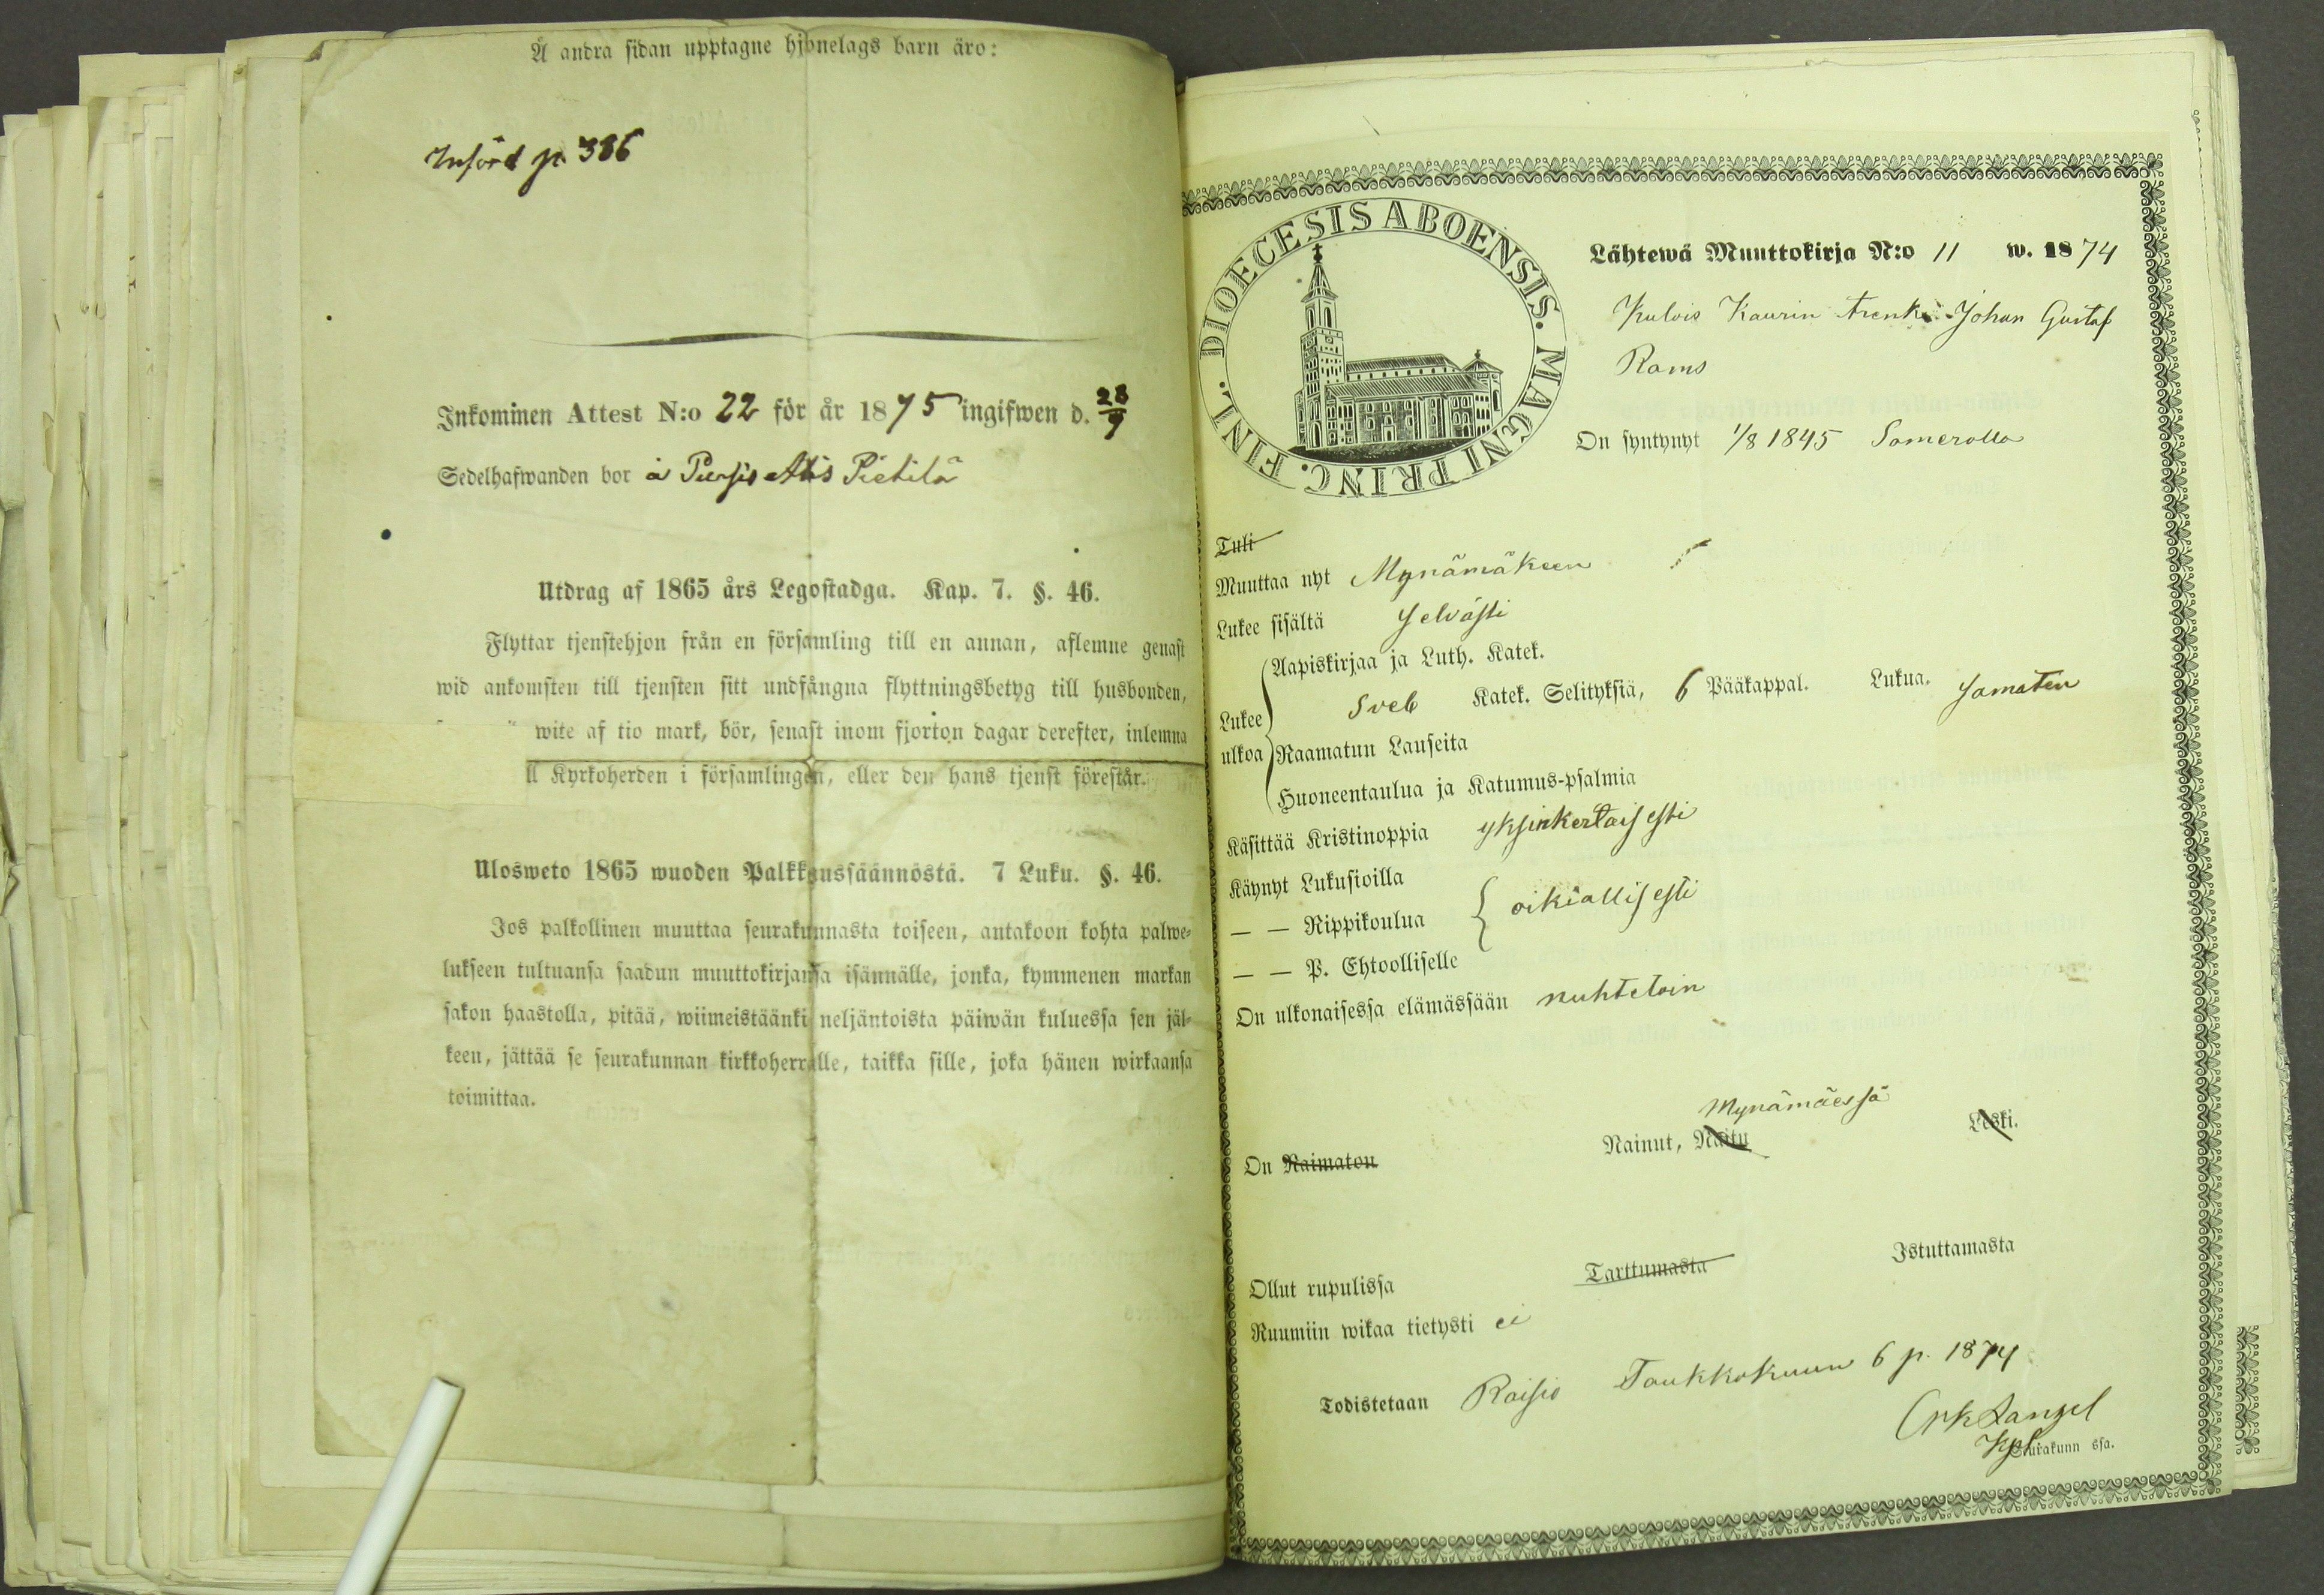 Å andra sidan upptagne hjonelags barn äro:
Införd p. 386
Inkominen Attest N:o 22 för år 1875 ingifwen d. 28/9
Sedelhafwanden bor å Pietilä
Utdrag af 1865 års Legostadga. Kap. 7. §. 46.
Flyttar tjenstehjon från en församling till en annan, aflemne genast
wid ankomsten till tjensten sitt undfångna flyttningsbetyg till husbonden,
wite af tio mark, bör, senast inom fjorton dagar derefter, inlemna
ll Kyrkoherden i församlingen, eller den hans tjenst förestår.
Ulosweto 1865 wuoden Palkkaussäännöstä. 7 Luku. §. 46.
Jos palkollinen muuttaa seurakunnasta toiseen, antakoon kohta palwe-
lukseen tultuansa saadun muuttokirjansa isännälle, jonka, kymmenen markan
sakon haastolla, pitää, wiimeistäänki neljäntoista päiwän kuluessa sen jäl-
keen, jättää se seurakunnan kirkkoherralle, taikka sille, joka hänen wirkaansa
toimittaa.
DIOECESIS ABOENSIS. MAGNI PRINC. FINL.
Lähtewä Muuttokirja N:o 11 w. 1874
Kaurin Trenki Johan Gustaf
Rams
On syntynyt 1/8 1845 Somerolla
Tuli
Muuttaa nyt Mynämäkeen
Lukee sisältä selvästi
Aapiskirjaa ja Luth. Katek.
Lukee ulkoa Sveb Katek. Selityksiä, 6 Pääkappal. Lukua. samaten
Raamatun Lauseita
Huoneentaulua ja Katumus-psalmia
Käsittää Kristinoppia yksinkertaisesti
Käynyt Lukusioilla
— — Rippikoulua oikiallisesti
— — P. Ehtoolliselle
On ulkonaisessa elämässään nuhtetoin
Mynämäessä
On Naimaton Nainut, Naitu Leski.
Ollut rupulissa Tarttumasta Istuttamasta
Ruumiin wikaa tietysti ei
Todistetaan Raisio Toukkokuun 6 p. 1874
Kpl. Seurakunn ssa.